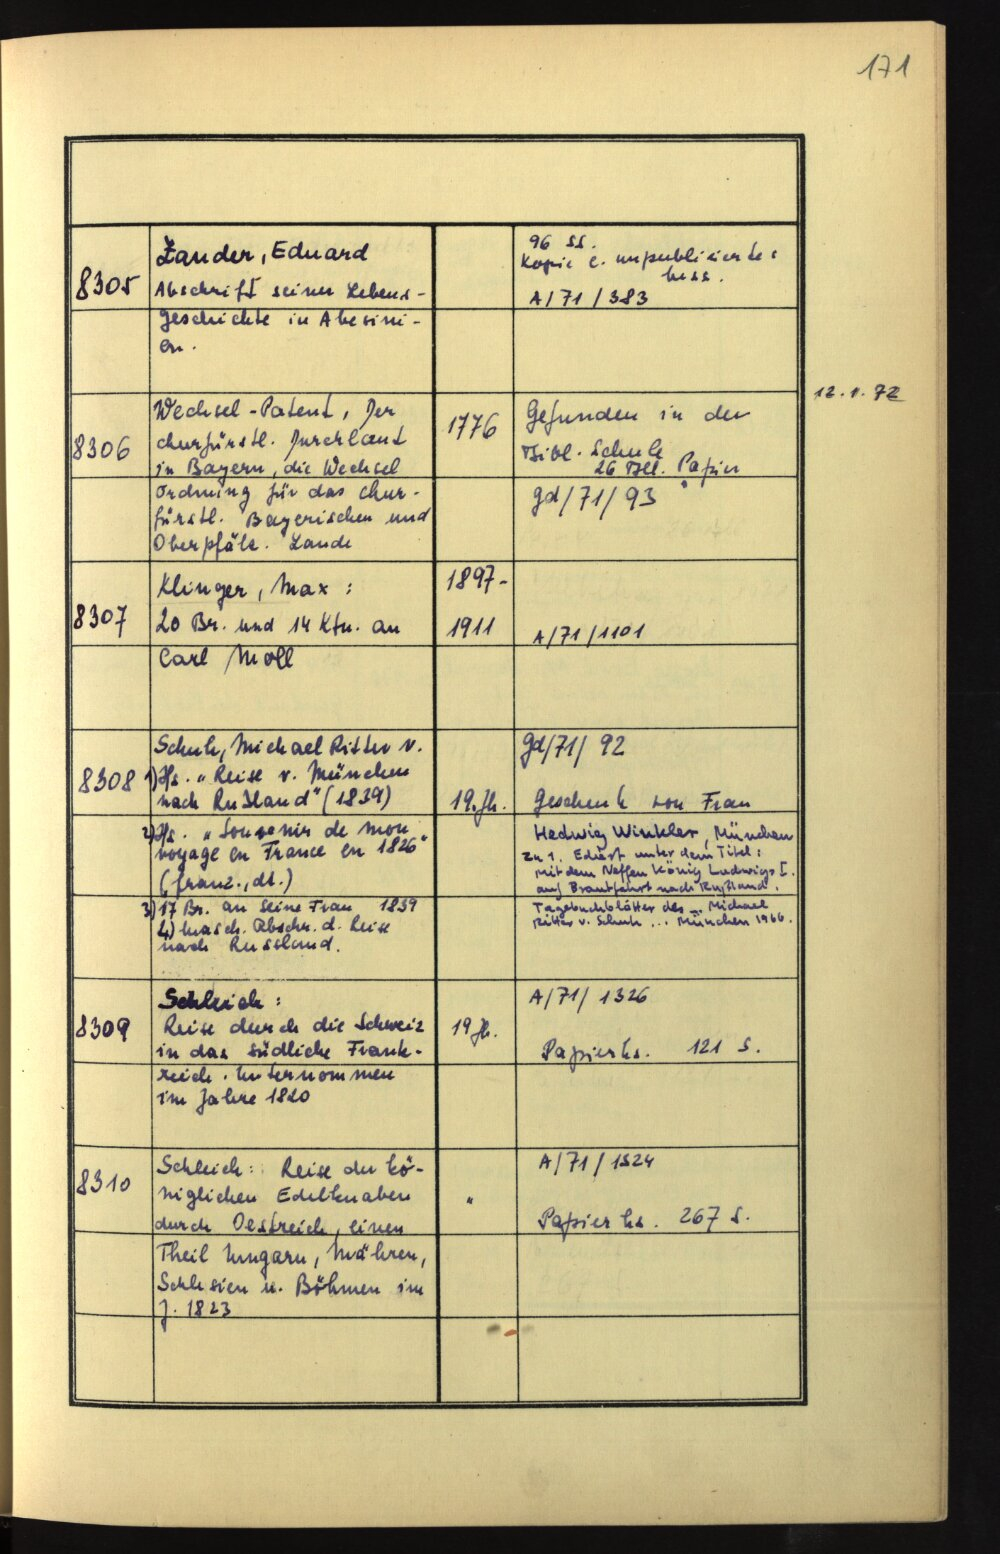 171
8305
Zander, Eduard
Abschrift seiner Lebens-
geschichte in Abesini-
en.
96 SS.
Kopie e. unpublizierte
Hss.
A/71/383
12.1.72
8306
Wechsel-Patent, Der
churfürstl. Durchlaut
in Bayern, die Wechsel
ordnung für das chur-
fürstl. Bayerischen und
Oberpfälz. Lande
1776
Gefunden in der
Bibl. Schule
26 Bll. Papier
gd/71/93
8307
Klinger, Max:
20 Br. und 14 Ktn. an
Carl Moll
1897-
1911
A/71/1101
8308
Schuh, Michael Ritter v.
1) Hs. "Reise v. München
nach Rußland" (1839)
2) Hs. "Souvenir de mon
voyage en France en 1826"
(franz., dt.)
3) 17 Br. an seine Frau 1839
4) masch. Abschr. d. Reise
nach Russland.
19. Jh.
gd/71/92
Geschenk von Frau
Hedwig Winkler, München
Zu 1. Ediert unter dem Titel:
Mit dem Neffen König Ludwigs I.
auf Brautfahrt nach Rußland.
Tagebuchblätter des Michael
Ritter v. Schuh ... München 1966.
8309
Schleich:
Reise durch die Schweiz
in das südliche Frank-
reich. Unternommen
im Jahre 1820
19 Jh.
A/71/1326
Papierhs. 121 S.
8310
Schleich: Reise der kö-
niglichen Edelknaben
durch Oestreich, einen
Theil Ungarn, Mähren,
Schlesien u. Böhmen im
J. 1823
"
A/71/1324
Papierhs. 267 S.